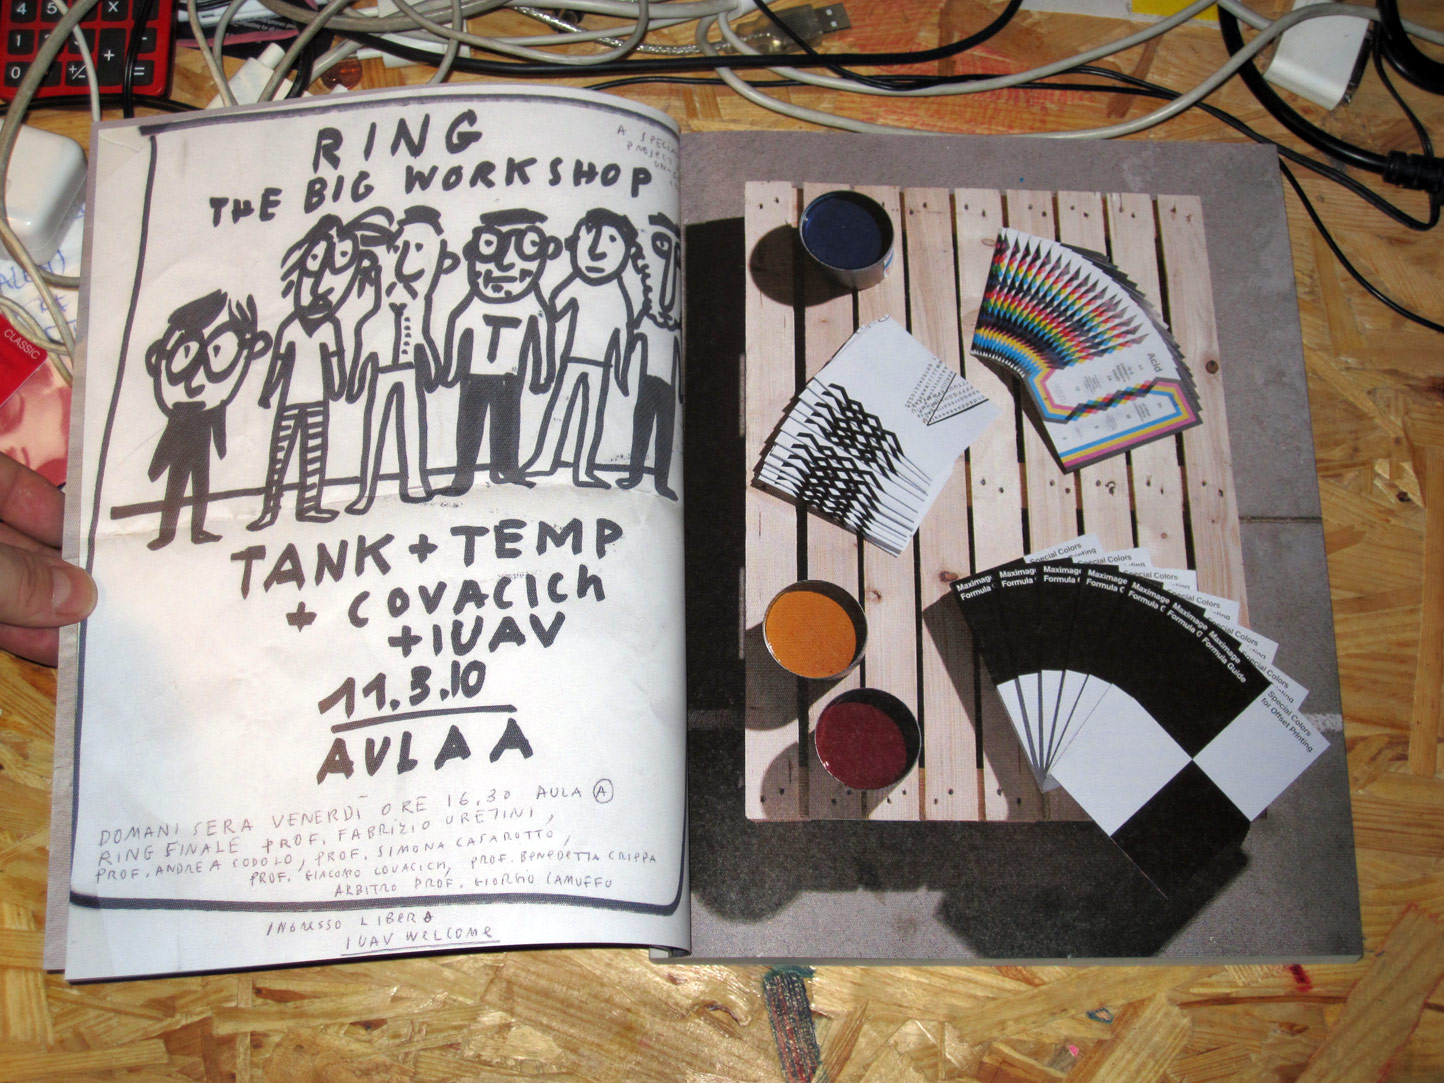 RING
THE BIG WORKSHOP
A SPECIAL
PROJECT
TANK + TEMP
+ COVACICH
+ IUAV
11.3.10
AULA A
DOMANI SERA VENERDÌ ORE 16,30 AULA A
RING FINALE PROF. FABRIZIO URETINI,
PROF. ANDREA CODOLO, PROF. SIMONA CASAROTTO,
PROF. GIACOMO COVACICH, PROF. BENEDETTA CRIPPA
ARBITRO PROF. GIORGIO CAMUFFO
INGRESSO LIBERO
IUAV WELCOME
T
Acid
Maximage
Formula Guide
Special Colors
for Offset Printing
CLASSIC
4 5 X
0 +/- =